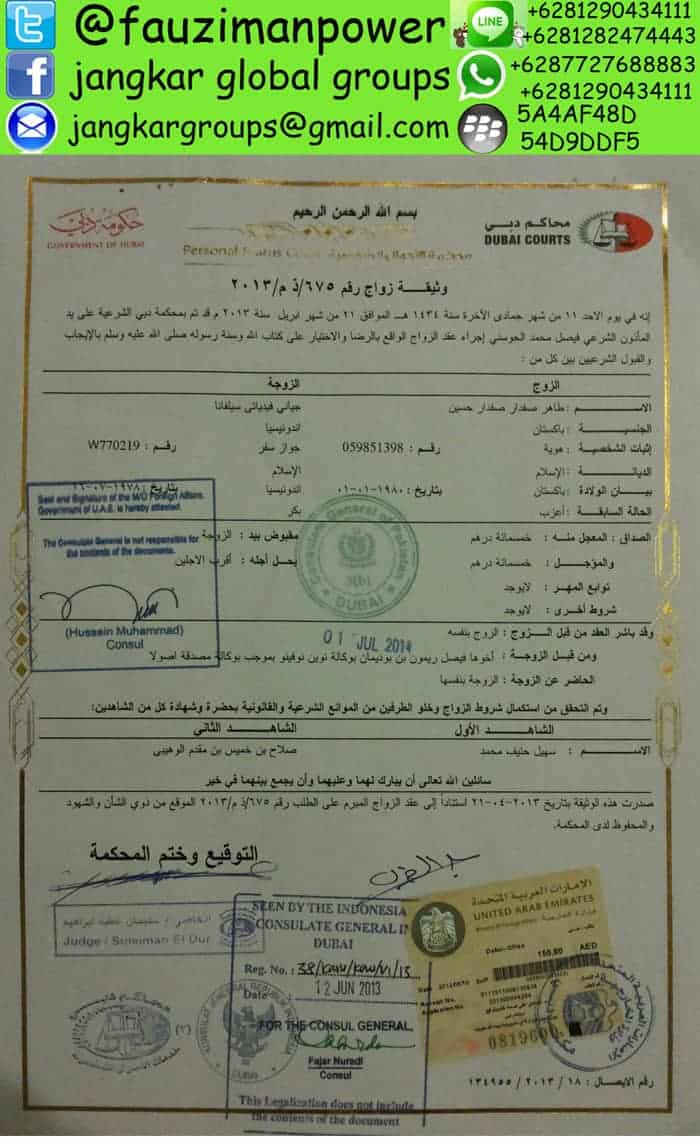 @fauzimanpower
LINE
+6281290434111
+6281282474443
jangkar global groups
+6287727688883
+6281290434111
jangkargroups@gmail.com
5A4AF48D
54D9DDF5
بسم الله الرحمن الرحيم
حكومة دبي
GOVERNMENT OF DUBAI
محاكم دبي
DUBAI COURTS
Personal Status
وثيقـــة زواج رقم ٦٧٥/ذ م/٢٠١٣
إنه في يوم الاحد ١١ من شهر جمادى الآخرة سنة ١٤٣٤ هـ الموافق ٢١ من شهر ابريل سنة ٢٠١٣ م قد تم بمحكمة دبي الشرعية على يد
المأذون الشرعي فيصل محمد الحوسني إجراء عقد الزواج الواقع بالرضا والاختيار على كتاب الله وسنة رسوله صلى الله عليه وسلم بالإيجاب
والقبول الشرعيين بين كل من :
الزوج الزوجة
الاســـم : طاهر صفدار صفدار حسين جياني فيدياتي سيلفانا
الجنسيـــة : باكستان اندونيسيا
إثبات الشخصية : هوية رقم : 059851398 جواز سفر رقم : W770219
الديانـــة : الإسلام الإسلام
بيـــان الولادة : باكستان بتاريخ : ٠١-٠١-١٩٨٠ اندونيسيا بتاريخ : ٢٦-٠٧-١٩٧٨
الحالة السابقـة : أعزب بكر
الصداق : المعجل منـه : خمسمائة درهم مقبوض بيد : الزوجة
والمؤجـــل : خمسمائة درهم يحـل أجله : أقرب الاجلين
توابع المهـر : لايوجد
شروط أخـرى : لايوجد
وقد باشر العقد من قبل الـــزوج : الزوج بنفسه
ومن قبـل الزوجـة : أخوها فيصل ريمون بن بوديمان بوكالة نوين نوفينو بموجب بوكالة مصدقة اصولا
الحاضر عن الزوجة : الزوجة بنفسها
Seal and Signature of the M/O Foreign Affairs,
Government of U.A.E. is hereby attested.
The Consulate General is not responsible for
the contents of the documents.
(Hussain Muhammad)
Consul
Consulate General of Pakistan
DUBAI
01 JUL 2014
وتم التحقق من استكمال شروط الزواج وخلو الطرفين من الموانع الشرعية والقانونية بحضرة وشهادة كل من الشاهدين:
الشاهـــد الأول الشاهـــد الثاني
الاســـم : سهيل حنيف محمد صلاح بن خميس بن مقدم الوهيبي
سائلين الله تعالى أن يبارك لهما وعليهما وأن يجمع بينهما في خير
صدرت هذه الوثيقة بتاريخ ٢٠١٣-٠٤-٢١ استناداً إلى عقد الزواج المبرم على الطلب رقم ٦٧٥/ذ م/٢٠١٣ الموقع من ذوي الشأن والشهود
والمحفوظ لدى المحكمة.
التوقيع وختم المحكمة
Judge / Suleiman El Dur
SEEN BY THE INDONESIA
CONSULATE GENERAL IN
DUBAI
Reg. No. :
Date
12 JUN 2013
FOR THE CONSUL GENERAL,
Fajar Nuradi
Consul
This Legalization does not include
the contents of the document
CONSULAT JENDERAL REPUBLIK INDONESIA
DUBAI
الامارات العربية المتحدة
UNITED ARAB EMIRATES
150.00 AED
رقم الايصال : ١٨ / ٢٠١٣ / ١٣٤٩٥٥